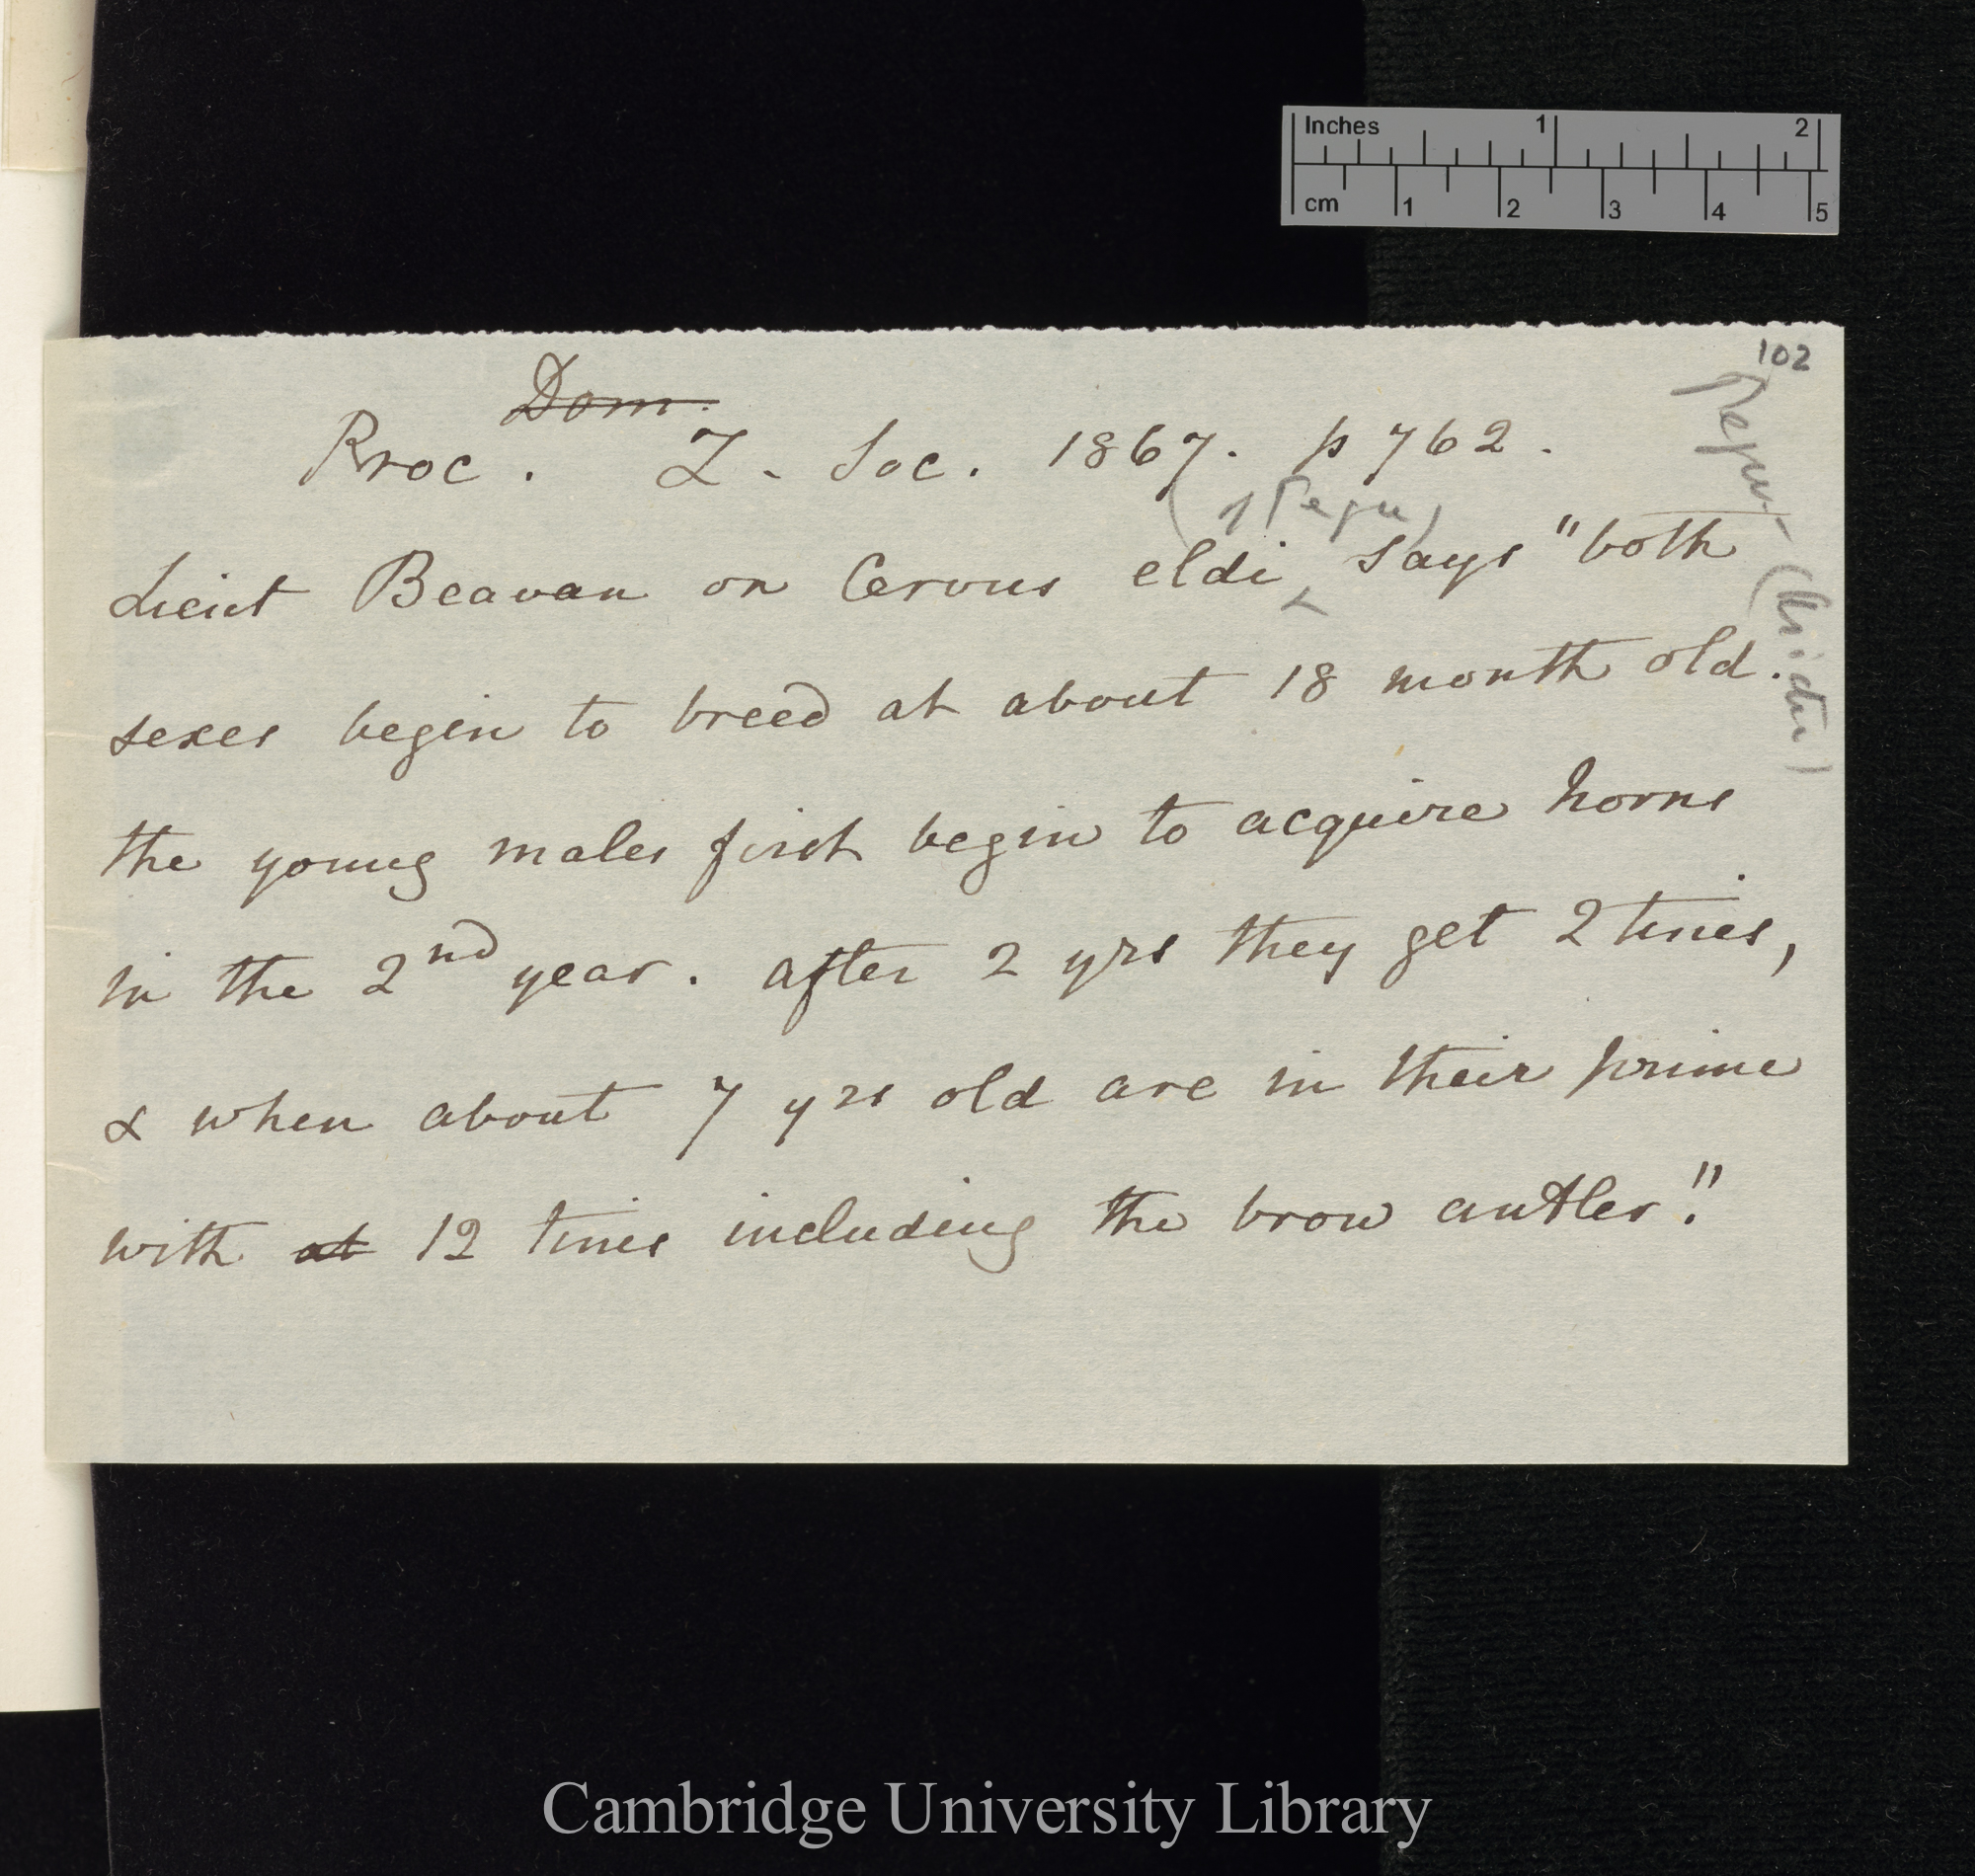 Inches 1 2
cm 1 2 3 4 5
102
Dom.
Proc. Z. Soc. 1867. p 762.
(of Pegu)
Lieut Beavan on Cervus eldi says "both
sexes begin to breed at about 18 month old.
the young males first begin to acquire horns
in the 2nd year. after 2 yrs they get 2 tines,
& when about 7 yrs old are in their prime
with at 12 tines including the brow antler."
Pegu
Cambridge University Library